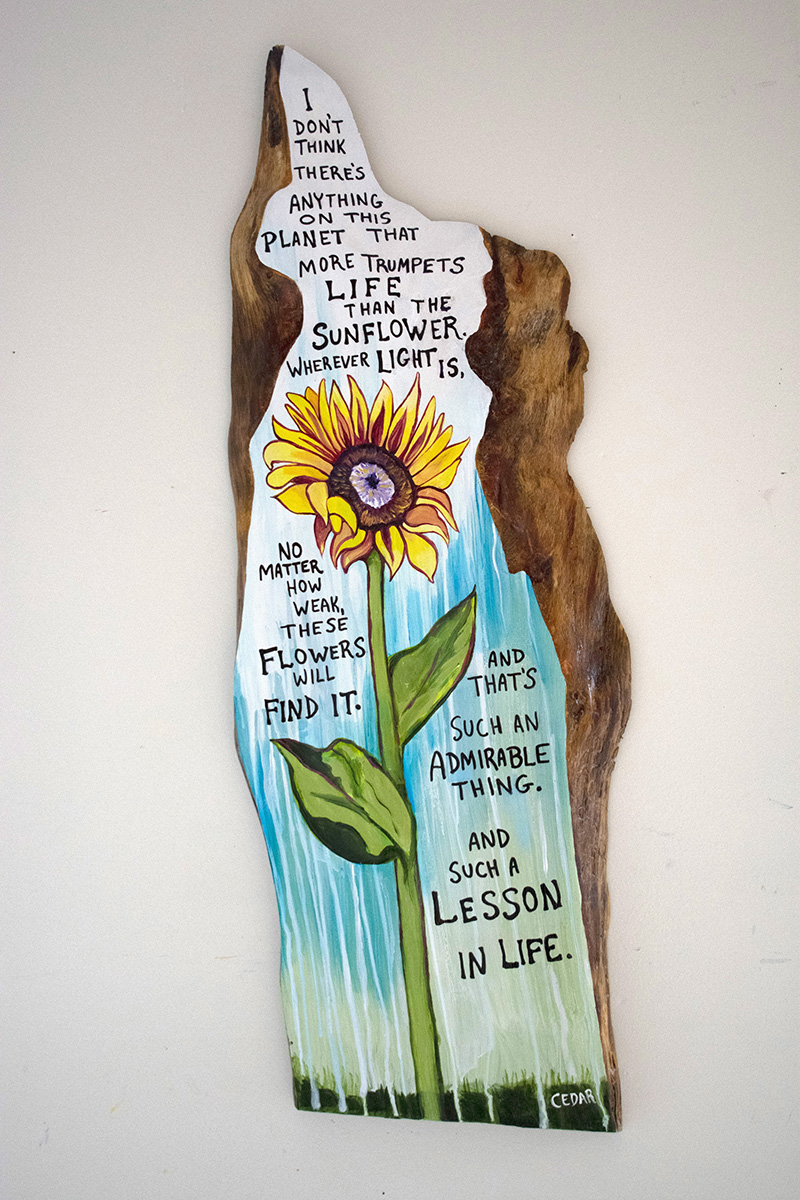 I
DON'T
THINK
THERE'S
ANYTHING
ON THIS
PLANET THAT
MORE TRUMPETS
LIFE
THAN THE
SUNFLOWER.
WHEREVER LIGHT IS,
NO
MATTER
HOW
WEAK,
THESE
FLOWERS
WILL
FIND IT.
AND
THAT'S
SUCH AN
ADMIRABLE
THING.
AND
SUCH A
LESSON
IN LIFE.
CEDAR